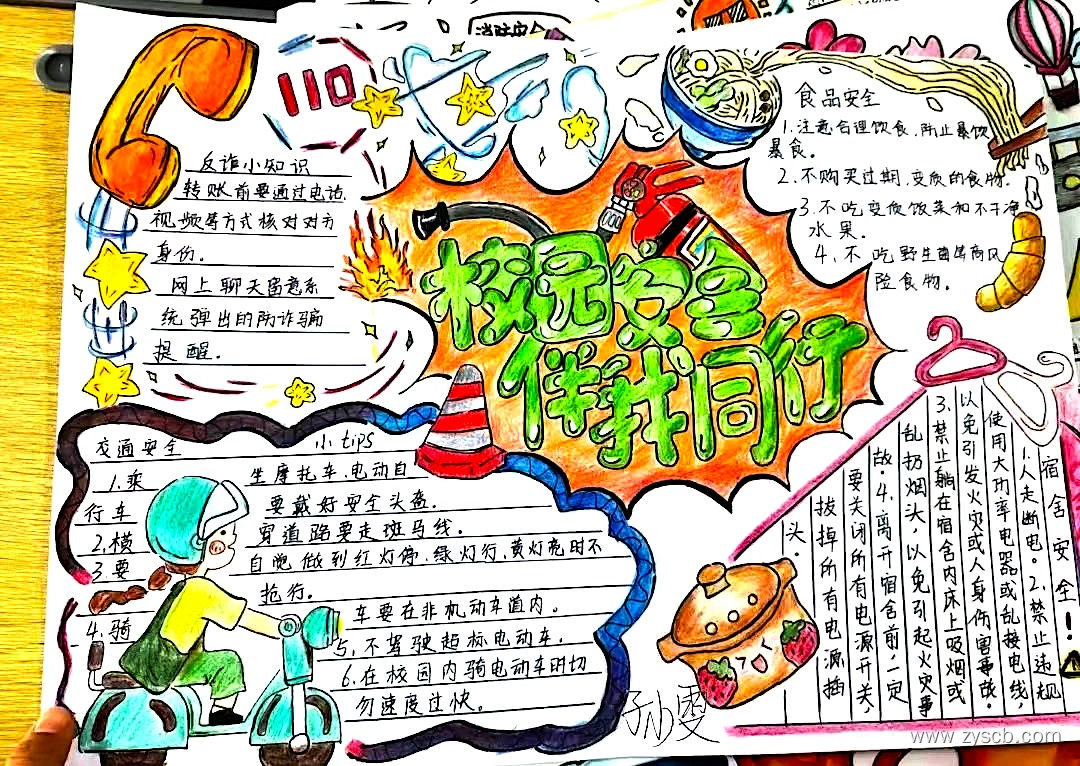 消防安全
110
校园安全
伴我同行
反诈小知识
转账前要通过电话、
视频等方式核对对方
身份。
网上聊天留意系
统弹出的防诈骗
提醒。
食品安全
1.注意合理饮食,防止暴饮
暴食。
2.不购买过期、变质的食物。
3.不吃变质饭菜和不干净
水果。
4.不吃野生菌等高风
险食物。
交通安全 小tips
1.乘坐摩托车、电动自
行车要戴好安全头盔。
2.横穿道路要走斑马线。
3.要自觉做到红灯停、绿灯行、黄灯亮时不
抢行。
4.骑车要在非机动车道内。
5.不驾驶超标电动车。
6.在校园内骑电动车时切
勿速度过快。
宿舍安全!
1.人走断电。2.禁止违规
使用大功率电器或乱接电线,
以免引发火灾或人身伤害事故。
3.禁止躺在宿舍内床上吸烟或
乱扔烟头,以免引起火灾事
故。4.离开宿舍前,一定
要关闭所有电源开关,
拔掉所有电源插
头。
www.zyscb.com